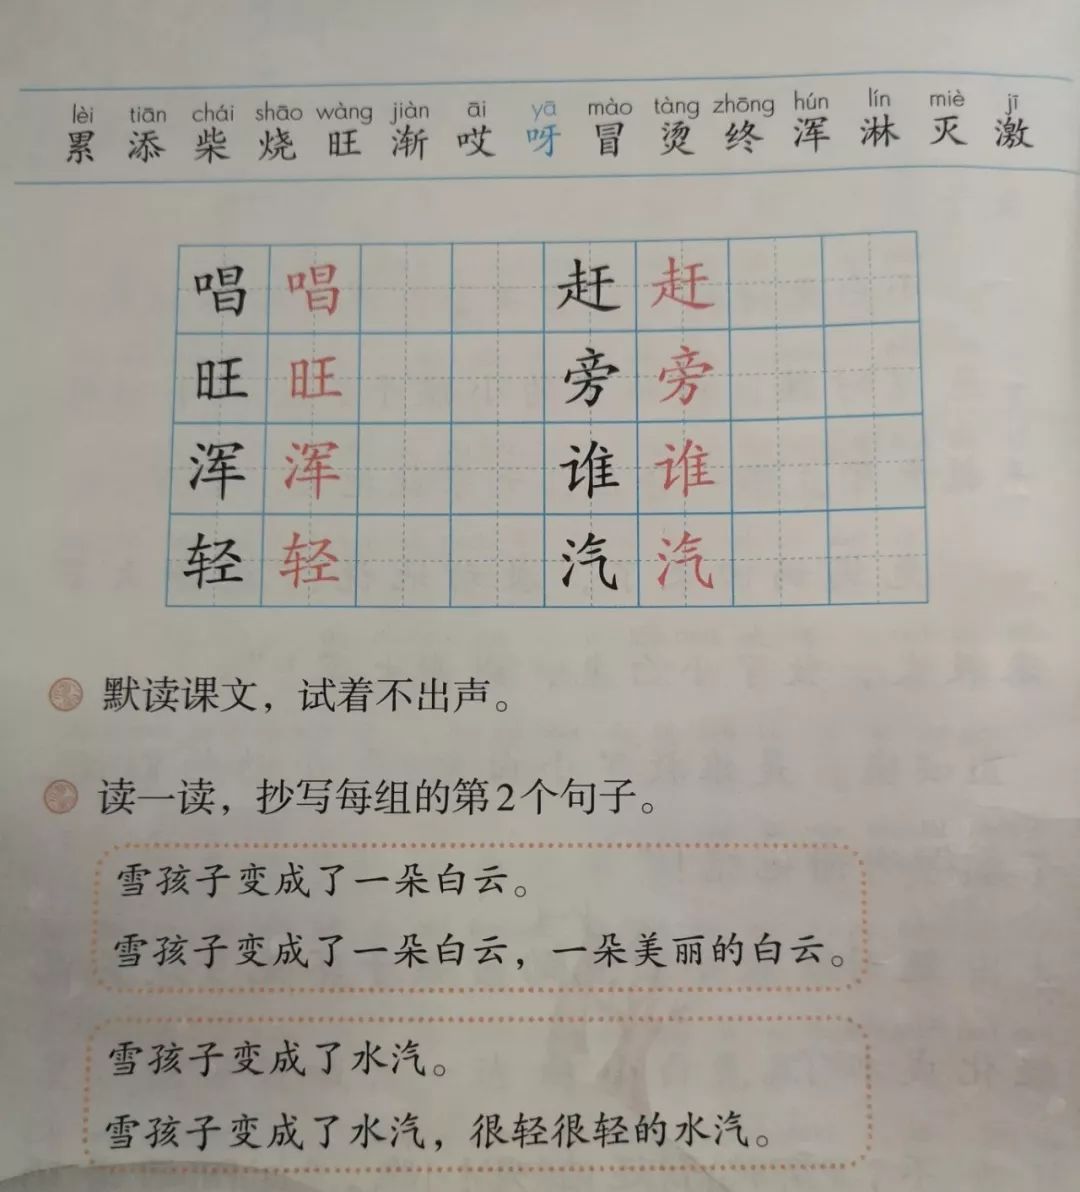 lèi tiān chái shāo wàng jiàn āi yā mào tàng zhōng hún lín miè jī
累 添 柴 烧 旺 渐 哎 呀 冒 烫 终 浑 淋 灭 激
唱 唱 赶 赶
旺 旺 旁 旁
浑 浑 谁 谁
轻 轻 汽 汽
默读课文，试着不出声。
读一读，抄写每组的第2个句子。
雪孩子变成了一朵白云。
雪孩子变成了一朵白云，一朵美丽的白云。
雪孩子变成了水汽。
雪孩子变成了水汽，很轻很轻的水汽。